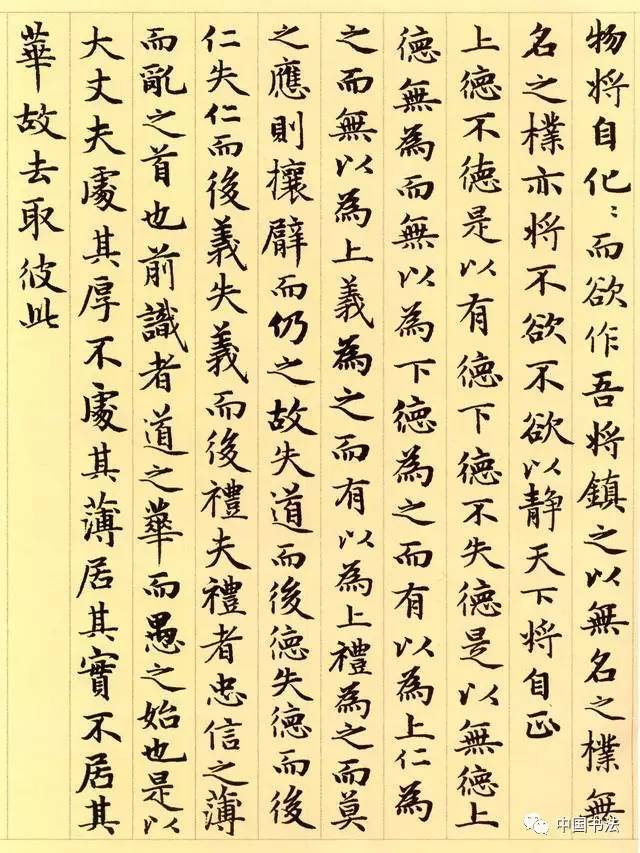 物将自化〻而欲作吾将鎮之以無名之樸無
名之樸亦将不欲不欲以静天下将自正
上德不德是以有德下德不失德是以無德上
德無為而無以為下德為之而有以為上仁為
之而無以為上義為之而有以為上禮為之而莫
之應則攘臂而仍之故失道而後德失德而後
仁失仁而後義失義而後禮夫禮者忠信之薄
而亂之首也前識者道之華而愚之始也是以
大丈夫處其厚不處其薄居其實不居其
華故去取彼此
中国书法